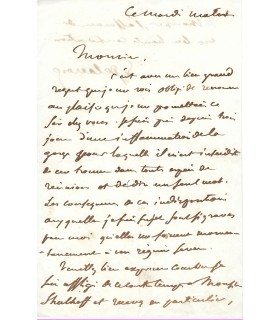 Ce mardi matin
Monsieur,
C'est avec un bien grand
regret que je me vois obligé de renoncer
au plaisir que je me promettais ce
soir chez vous. Je suis pris depuis trois
jours d'une inflammation de la
gorge pour laquelle il m'est interdit
de me trouver dans toute espèce de
réunion et de dire un seul mot.
Les conséquences de ces indispositions
auxquelles je suis sujet sont si graves
pour moi qu'elles me forcent momen-
tanément à un régime sévère.
Veuillez bien exprimer combien je
suis affligé de ce contretemps à Monsieur
et recevez en particulier,